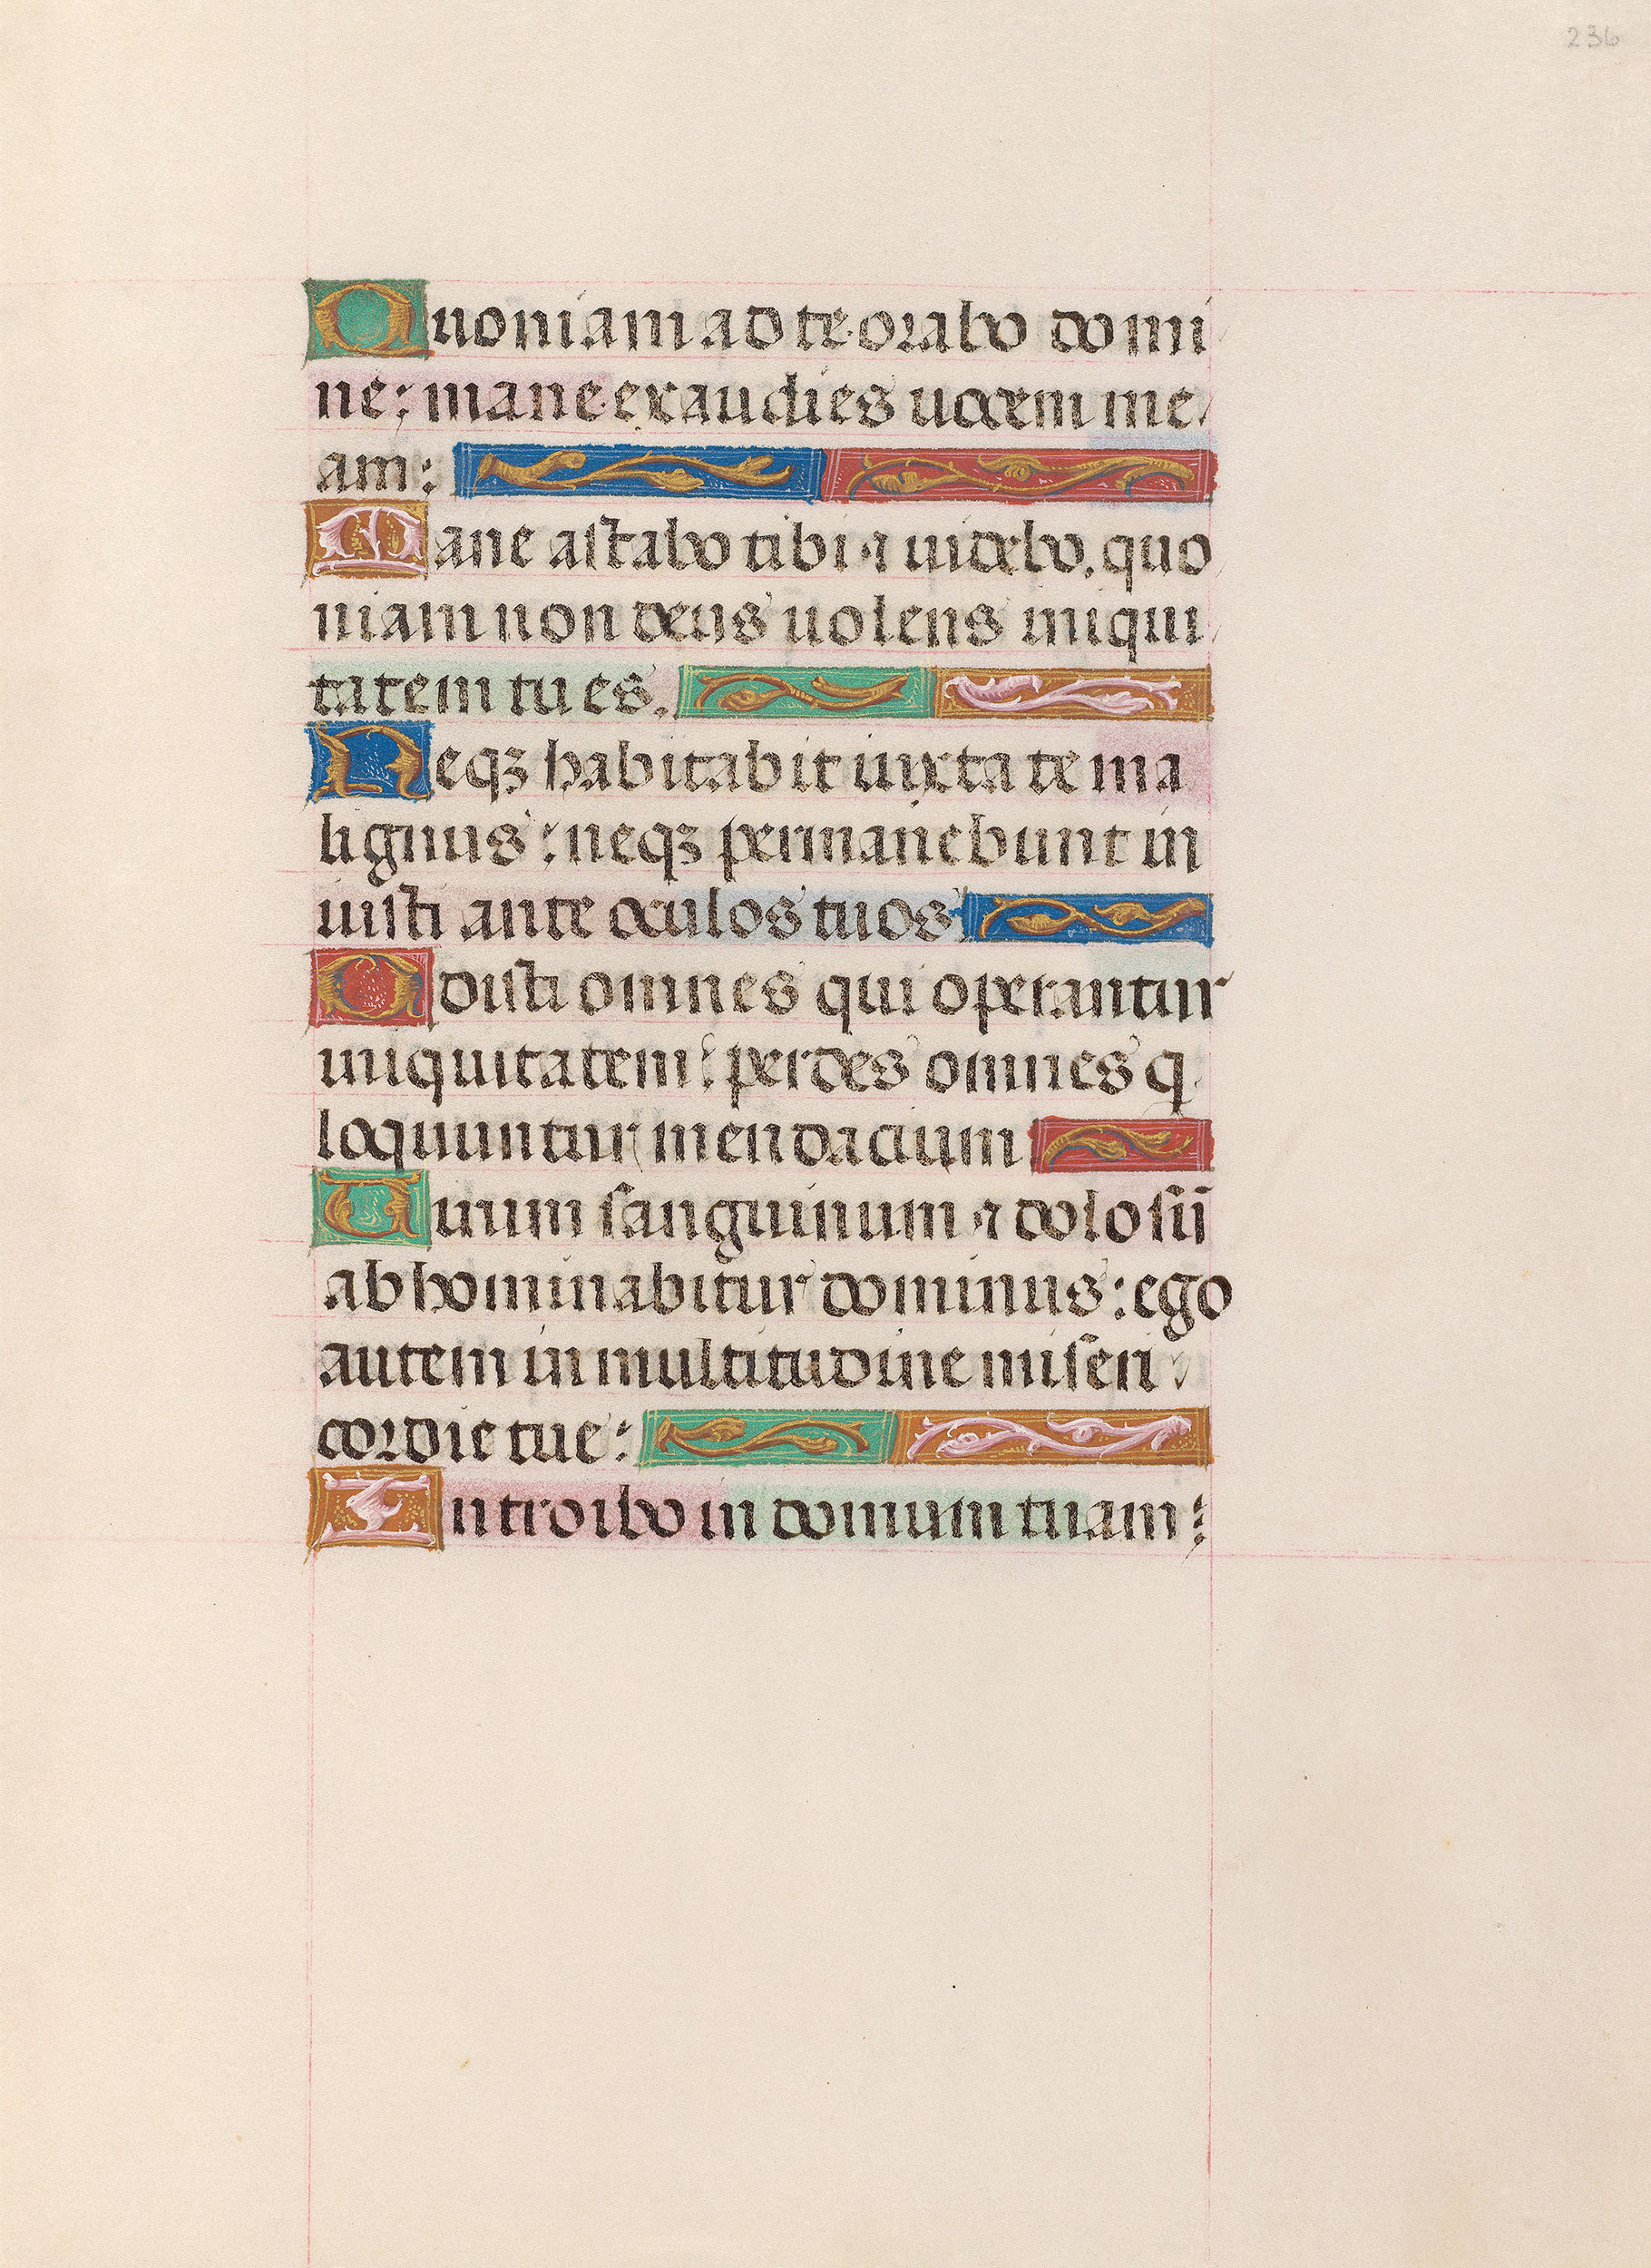 236
Quoniam ad te orabo domi
ne: mane exaudies uocem me
am:
Mane astabo tibi ⁊ uidebo. quo
niam non deus uolens iniqui
tatem tu es.
Neqꝫ habitabit iuxta te ma
lignus: neqꝫ permanebunt in
iusti ante oculos tuos
Odisti omnes qui operantur
iniquitatem: perdes omnes q
loquuntur mendacium
Uirum sanguinum ⁊ dolosū
abhominabitur dominus: ego
autem in multitudine miseri
cordie tue:
Introibo in domum tuam: